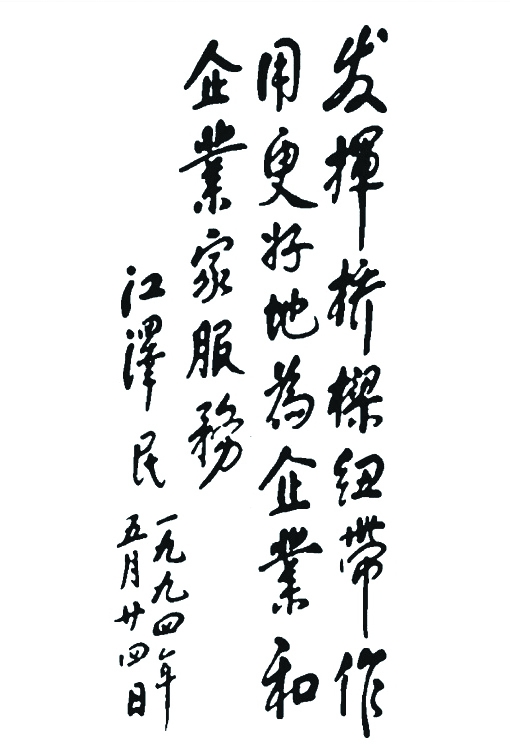 发揮桥樑纽帶作
用更好地為企業和
企業家服務
江澤民
一九九四年
五月廿四日